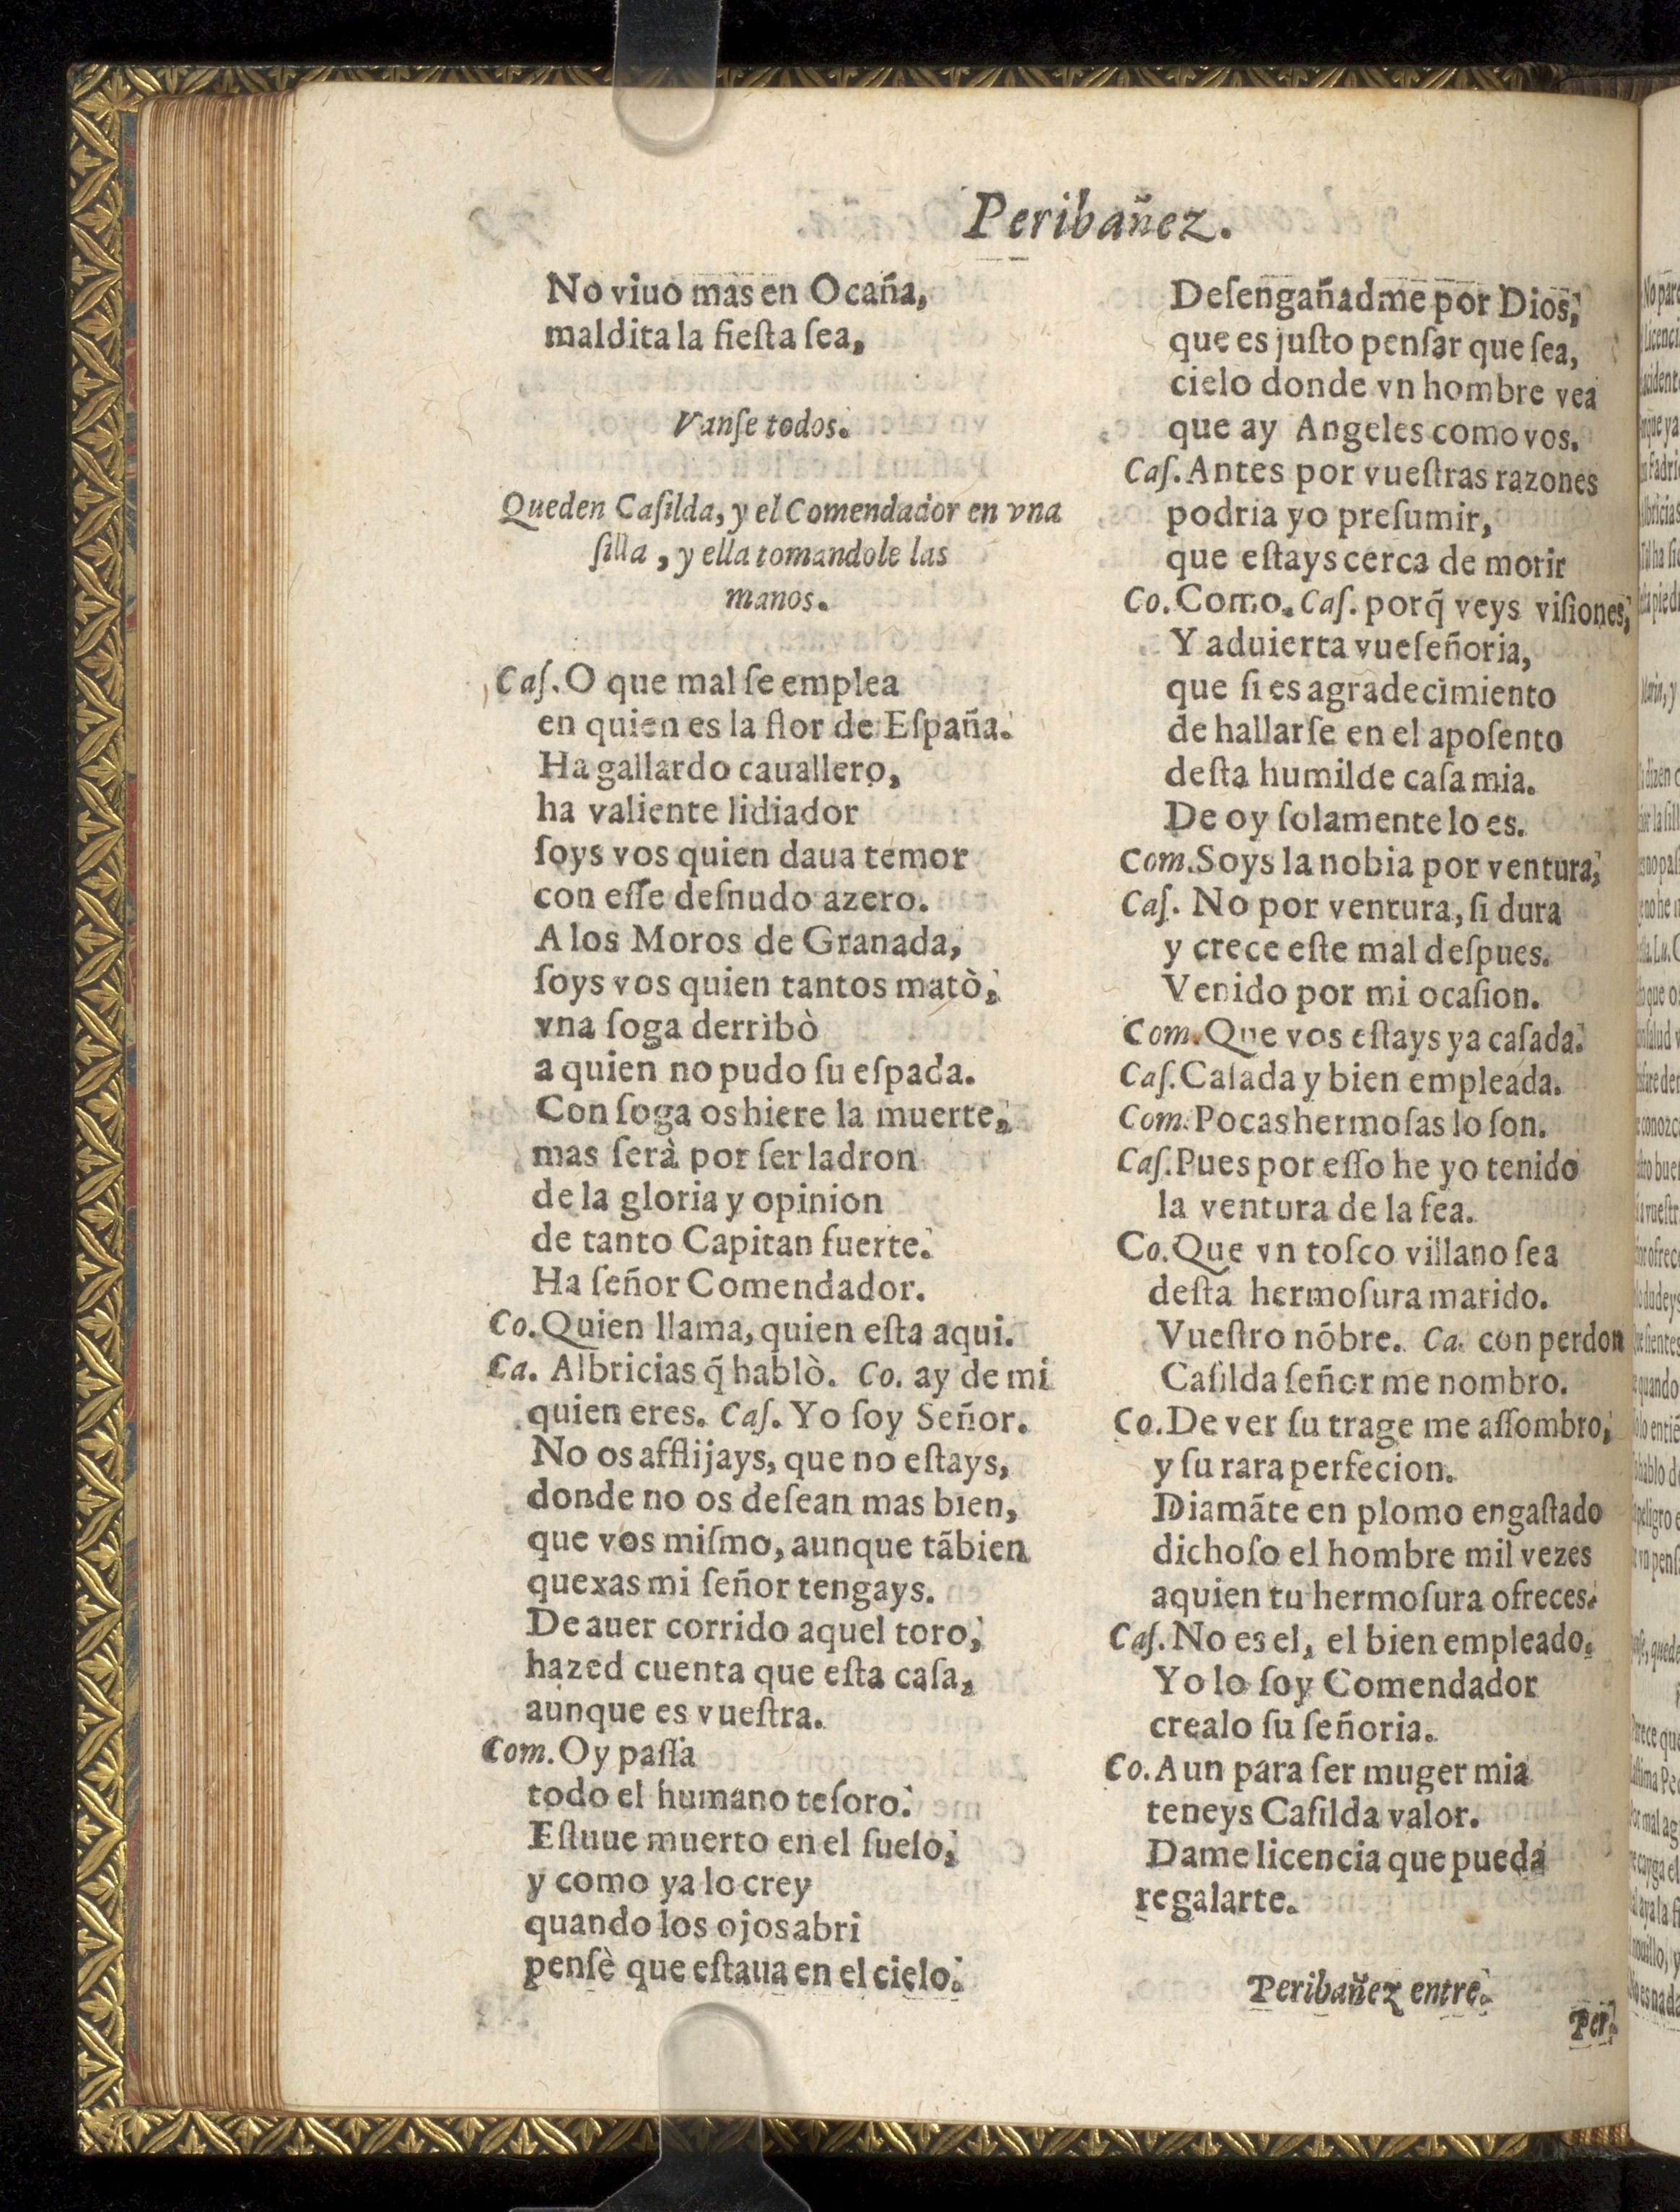 Peribañez.
No viuo mas en Ocaña,
maldita la fiesta sea,
Vanſe todos.
Queden Caſilda, y el Comendador en vna
ſilla, y ella tomandole las
manos.
Caſ. O que mal ſe emplea
en quien es la flor de Eſpaña.
Ha gallardo cauallero,
ha valiente lidiador
ſoys vos quien daua temor
con eſſe deſnudo azero.
A los Moros de Granada,
ſoys vos quien tantos matò,
vna ſoga derribò
a quien no pudo ſu eſpada.
Con ſoga os hiere la muerte,
mas ſerà por ſer ladron
de la gloria y opinion
de tanto Capitan fuerte.
Ha ſeñor Comendador.
Co. Quien llama, quien eſta aqui.
Ca. Albricias q̃ hablò. Co. ay de mi
quien eres. Caſ. Yo ſoy Señor.
No os afflijays, que no eſtays,
donde no os deſean mas bien,
que vos miſmo, aunque tãbien
quexas mi ſeñor tengays.
De auer corrido aquel toro,
hazed cuenta que eſta caſa,
aunque es vueſtra.
Com. Oy paſſa
todo el humano teſoro.
Eſtuue muerto en el ſuelo,
y como ya lo crey
quando los ojos abri
penſè que eſtaua en el cielo.
Deſengañadme por Dios,
que es juſto penſar que ſea,
cielo donde vn hombre vea
que ay Angeles como vos.
Caſ. Antes por vueſtras razones
podria yo preſumir,
que eſtays cerca de morir
Co. Como. Caſ. porq̃ veys viſiones,
Y aduierta vueſeñoria,
que ſi es agradecimiento
de hallarſe en el apoſento
deſta humilde caſa mia.
De oy ſolamente lo es.
Com. Soys la nobia por ventura,
Caſ. No por ventura, ſi dura
y crece eſte mal deſpues.
Venido por mi ocaſion.
Com. Que vos eſtays ya caſada.
Caſ. Caſada y bien empleada.
Com. Pocas hermoſas lo ſon.
Caſ. Pues por eſſo he yo tenido
la ventura de la fea.
Co. Que vn toſco villano ſea
deſta hermoſura marido.
Vueſtro nõbre. Ca. con perdon
Caſilda ſeñor me nombro.
Co. De ver ſu trage me aſſombro,
y ſu rara perfecion.
Diamãte en plomo engaſtado
dichoſo el hombre mil vezes
aquien tu hermoſura ofreces.
Caſ. No es el, el bien empleado.
Yo lo ſoy Comendador
crealo ſu ſeñoria.
Co. Aun para ſer muger mia
teneys Caſilda valor.
Dame licencia que pueda
regalarte.
Peribañez entre.
Per.